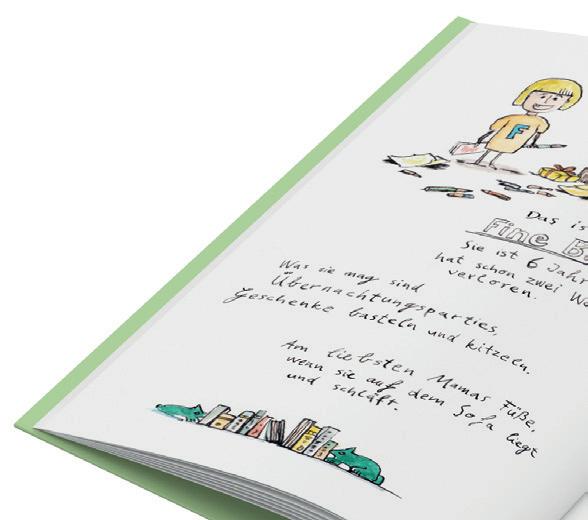 F
Das is
Fine B
Sie ist 6 Jahr
hat schon zwei Wa
verloren.
Was sie mag sind
Übernachtungsparties,
Geschenke basteln und kitzeln.
Am liebsten Mamas Füße,
wenn sie auf dem Sofa liegt
und schläft.